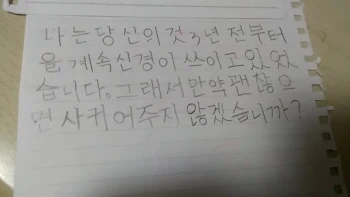 나는 당신의 것 3년 전부터
을 계속 신경이 쓰이고 있었
습니다. 그래서 만약 괜찮으
면 사귀어주지 않겠습니까?